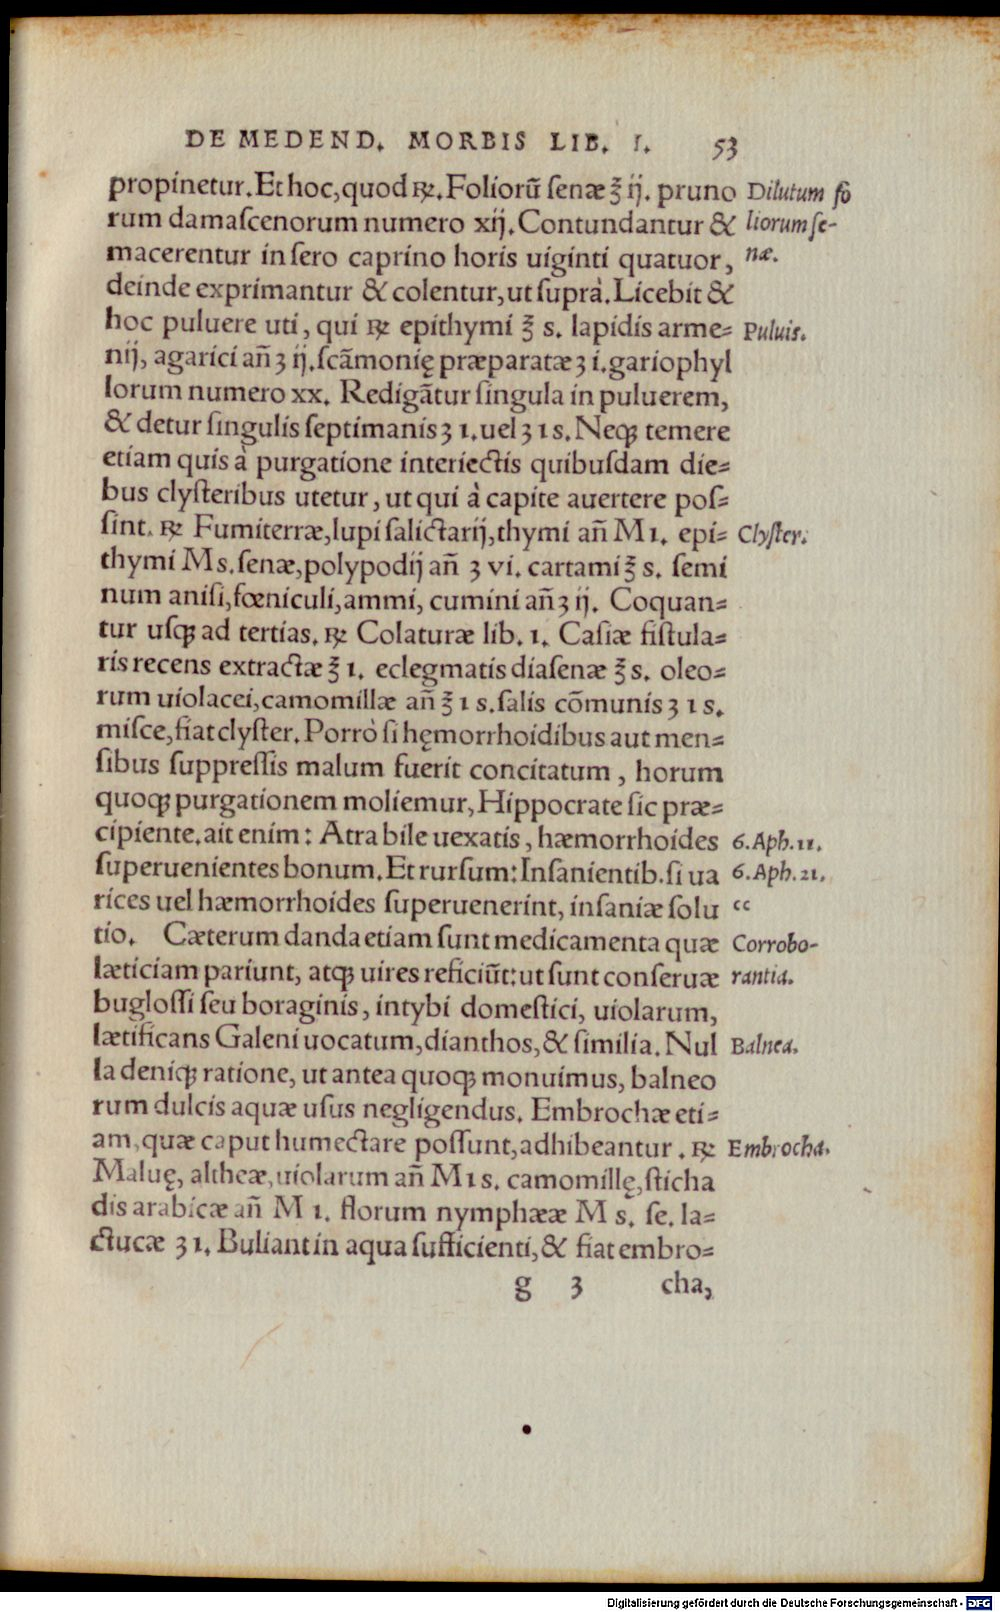 DE MEDEND. MORBIS LIB. I. 53
propinetur. Et hoc, quod ℞. Foliorũ senæ ℥ ij. pruno
Dilutum fo
rum damascenorum numero xij. Contundantur &
liorum se-
macerentur in sero caprino horis uiginti quatuor,
næ.
deinde exprimantur & colentur, ut suprà. Licebit &
hoc puluere uti, qui ℞ epithymi ℥ s. lapidis arme=
Puluis.
nij, agarici añ ʒ ij. scãmonię præparatæ ʒ i. gariophyl
lorum numero xx. Redigãtur singula in puluerem,
& detur singulis septimanis ʒ 1. uel ʒ 1 s. Neqꝫ temere
etiam quis à purgatione interiectis quibusdam die=
bus clysteribus utetur, ut qui à capite auertere pos=
sint. ℞ Fumiterræ, lupi salictarij, thymi añ M 1. epi=
Clyster.
thymi M s. senæ, polypodij añ ʒ vi. cartami ℥ s. semi
num anisi, fœniculi, ammi, cumini añ ʒ ij. Coquan=
tur usqꝫ ad tertias. ℞ Colaturæ lib. 1. Casiæ fistula=
ris recens extractæ ℥ 1. eclegmatis diasenæ ℥ s. oleo=
rum uiolacei, camomillæ añ ℥ 1 s. salis cõmunis ʒ 1 s.
misce, fiat clyster. Porrò si hęmorrhoidibus aut men=
sibus suppressis malum fuerit concitatum, horum
quoqꝫ purgationem moliemur, Hippocrate sic præ=
cipiente. ait enim: Atra bile uexatis, hæmorrhoides
6. Aph. 11.
superuenientes bonum. Et rursum: Insanientib. si ua
6. Aph. 21.
rices uel hæmorrhoides superuenerint, insaniæ solu
cc
tio. Cæterum danda etiam sunt medicamenta quæ
Corrobo-
læticiam pariunt, atqꝫ uires reficiũt: ut sunt conseruæ
rantia.
buglossi seu boraginis, intybi domestici, uiolarum,
lætificans Galeni uocatum, dianthos, & similia. Nul
Balnea.
la deniqꝫ ratione, ut antea quoqꝫ monuimus, balneo
rum dulcis aquæ usus negligendus. Embrochæ eti=
am, quæ caput humectare possunt, adhibeantur. ℞
Embrocha.
Maluę, altheæ, uiolarum añ M 1 s. camomillę, sticha
dis arabicæ añ M 1. florum nymphææ M s. se. la=
ctucæ ʒ 1. Buliant in aqua sufficienti, & fiat embro=
g 3 cha,
Digitalisierung gefördert durch die Deutsche Forschungsgemeinschaft - DFG